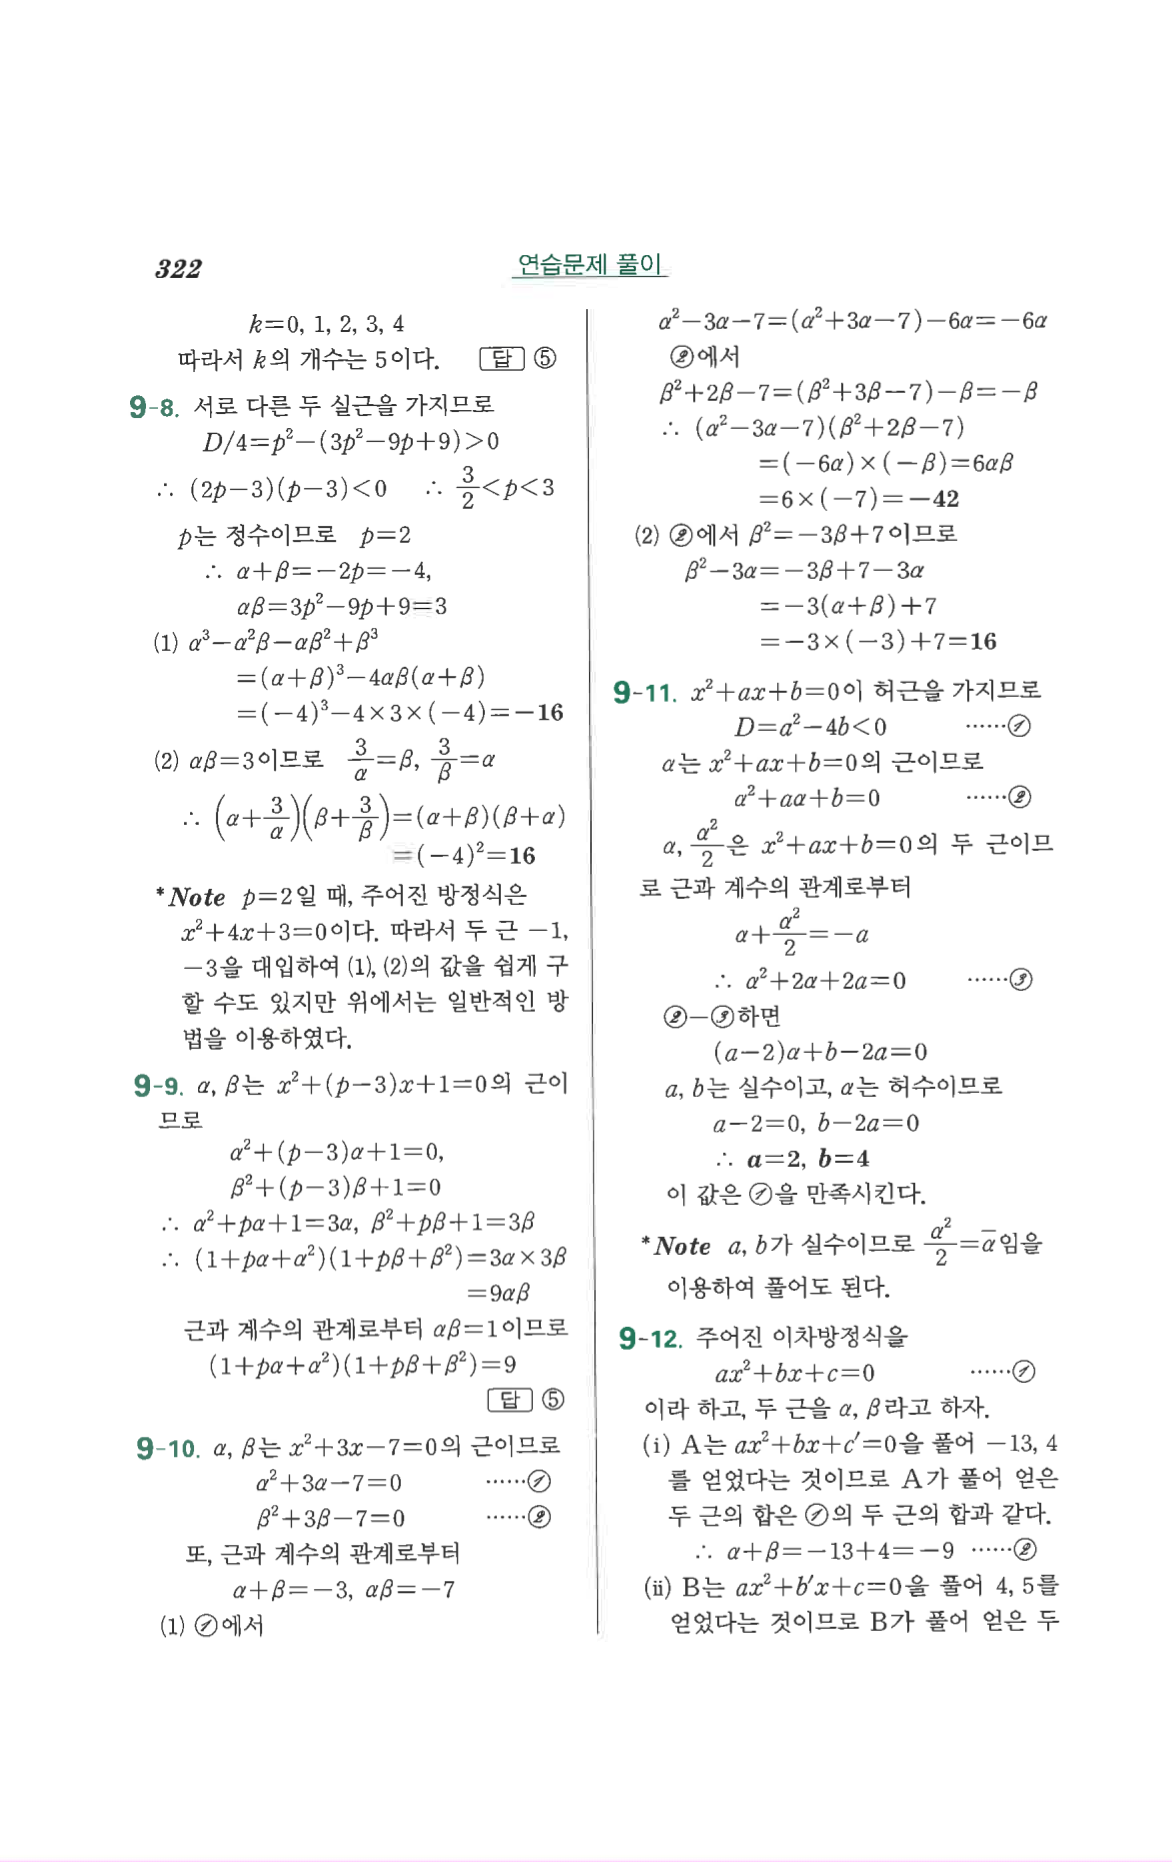 322
연습문제 풀이
k=0, 1, 2, 3, 4
따라서 k의 개수는 5이다. 답 ⑤
9-8. 서로 다른 두 실근을 가지므로
D/4=p²-(3p²-9p+9)>0
∴ (2p-3)(p-3)<0 ∴ 3/2<p<3
p는 정수이므로 p=2
∴ α+β=-2p=-4,
αβ=3p²-9p+9=3
(1) α³-α²β-αβ²+β³
=(α+β)³-4αβ(α+β)
=(-4)³-4×3×(-4)=-16
(2) αβ=3이므로 3/α=β, 3/β=α
∴ (α+3/α)(β+3/β)=(α+β)(β+α)
=(-4)²=16
*Note p=2일 때, 주어진 방정식은
x²+4x+3=0이다. 따라서 두 근 -1,
-3을 대입하여 (1), (2)의 값을 쉽게 구
할 수도 있지만 위에서는 일반적인 방
법을 이용하였다.
9-9. α, β는 x²+(p-3)x+1=0의 근이
므로
α²+(p-3)α+1=0,
β²+(p-3)β+1=0
∴ α²+pα+1=3α, β²+pβ+1=3β
∴ (1+pα+α²)(1+pβ+β²)=3α×3β
=9αβ
근과 계수의 관계로부터 αβ=1이므로
(1+pα+α²)(1+pβ+β²)=9
답 ⑤
9-10. α, β는 x²+3x-7=0의 근이므로
α²+3α-7=0 ……①
β²+3β-7=0 ……②
또, 근과 계수의 관계로부터
α+β=-3, αβ=-7
(1) ①에서
α²-3α-7=(α²+3α-7)-6α=-6α
②에서
β²+2β-7=(β²+3β-7)-β=-β
∴ (α²-3α-7)(β²+2β-7)
=(-6α)×(-β)=6αβ
=6×(-7)=-42
(2) ②에서 β²=-3β+7이므로
β²-3α=-3β+7-3α
=-3(α+β)+7
=-3×(-3)+7=16
9-11. x²+ax+b=0이 허근을 가지므로
D=a²-4b<0 ……①
α는 x²+ax+b=0의 근이므로
α²+aα+b=0 ……②
α, α²/2은 x²+ax+b=0의 두 근이므
로 근과 계수의 관계로부터
α+α²/2=-a
∴ α²+2α+2a=0 ……③
②-③하면
(a-2)α+b-2a=0
a, b는 실수이고, α는 허수이므로
a-2=0, b-2a=0
∴ a=2, b=4
이 값은 ①을 만족시킨다.
*Note a, b가 실수이므로 α²/2=α̅임을
이용하여 풀어도 된다.
9-12. 주어진 이차방정식을
ax²+bx+c=0 ……①
이라 하고, 두 근을 α, β라고 하자.
(i) A는 ax²+bx+c′=0을 풀어 -13, 4
를 얻었다는 것이므로 A가 풀어 얻은
두 근의 합은 ①의 두 근의 합과 같다.
∴ α+β=-13+4=-9 ……②
(ii) B는 ax²+b′x+c=0을 풀어 4, 5를
얻었다는 것이므로 B가 풀어 얻은 두